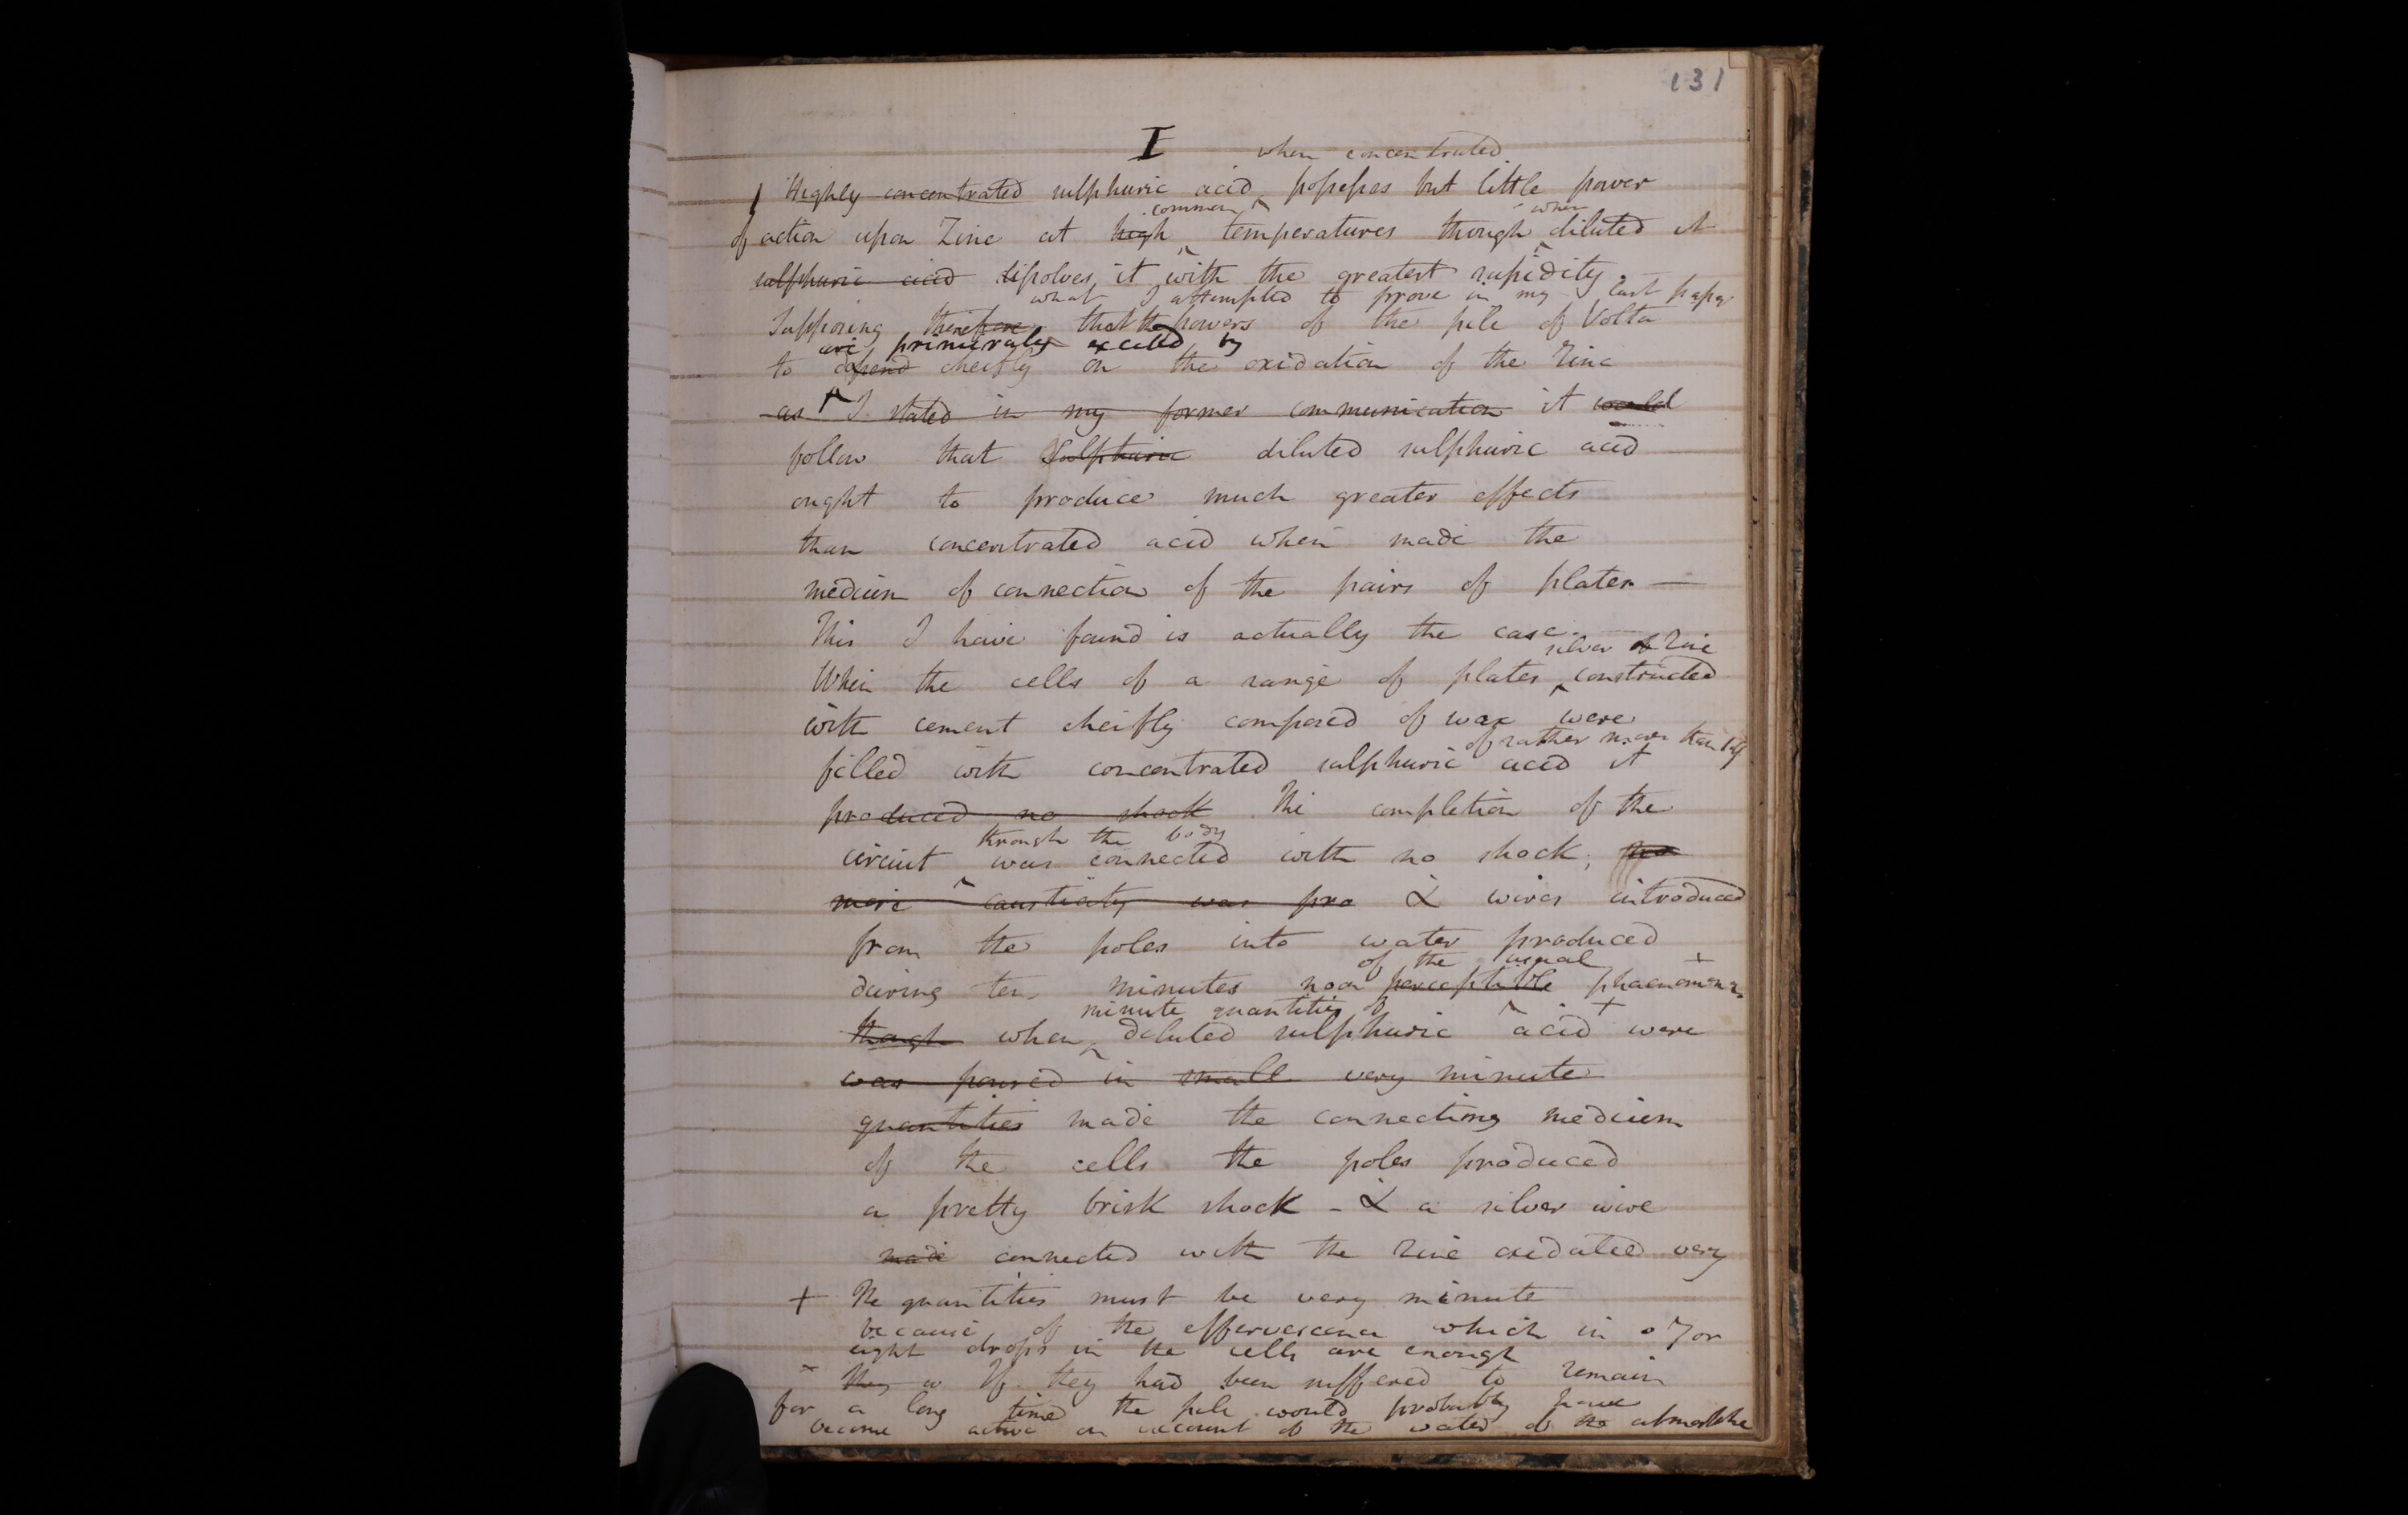 131
I
when concentrated
1 Highly concentrated sulphuric acid possesses but little power
common when
of action upon Zinc at high temperatures though diluted it
sulphuric acid dissolves it with the greatest rapidity.
what I attempted to prove in my last paper
Supposing therefore that the powers of the pile of Volta
are primeraly excited by
to depend cheifly on the oxidation of the Zinc
as I stated in my former communication it would
follow that Sulphuric diluted sulphuric acid
ought to produce much greater effects
than concentrated acid when made the
medium of connection of the pairs of plates —
This I have found is actually the case.
silver & Zinc
When the cells of a range of plates constructed
with cement cheifly composed of wax were
of rather more than
filled with concentrated sulphuric acid it
produced no shock The completion of the
through the body
circuit was connected with no shock; no
more causticity was pro & wires introduced
from the poles into water produced
of the usual +
during ten minutes non perceptible phaenomena
minute quantities of +
though when diluted sulphuric acid were
was poured in small very minute
quantities made the connecting medium
of the cells the poles produced
a pretty brisk shock - & a silver wire
made connected with the zinc oxidated very
+ The quantities must be very minute
because of the effervescence which in 7 or
eight drops in the cells are enough
x They w If they had been suffered to remain
for a long time the pile would probably have
become active on account of the water of the atmosphe